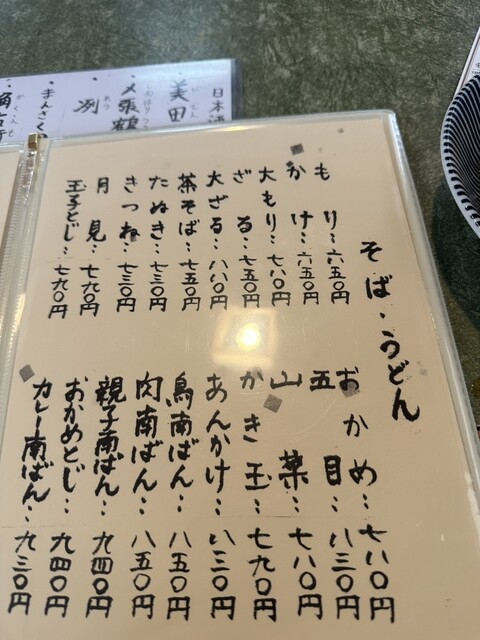 そば・うどん
もり…六五〇円
かけ…六五〇円
大もり…七八〇円
ざる…七五〇円
大ざる…八八〇円
茶そば…七五〇円
たぬき…七三〇円
きつね…七三〇円
月見…七九〇円
玉子とじ…七九〇円
おかめ…七八〇円
五目…八三〇円
山菜…七八〇円
かき玉…七九〇円
あんかけ…八三〇円
鳥南ばん…八五〇円
肉南ばん…八五〇円
親子南ばん…九四〇円
おかめとじ…九四〇円
カレー南ばん…九三〇円
日本酒
・美田
・〆張鶴
・洌
・まんさく